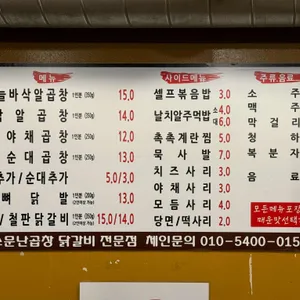 메뉴
늘바삭알곱창 1인분 (250g) 15,0
알곱창 1인분 (250g) 14,0
야채곱창 1인분 (250g) 12,0
순대곱창 1인분 (250g) 13,0
추가/순대추가 5,0/3,0
뼈닭발 1인분 13,0
/철판닭갈비 1인분 15,0/14,0
사이드메뉴
셀프볶음밥 3,0
날치알주먹밥 소4,0 대6,0
촉촉계란찜 5,0
묵사발 7,0
치즈사리 3,0
야채사리 3,0
모듬사리 4,0
당면/떡사리 2,0
주류,음료
소주
맥주
막걸리
청하
복분자
음료
모든메뉴포장
매운맛선택
소문난곱창 닭갈비 전문점 체인문의 010-5400-015